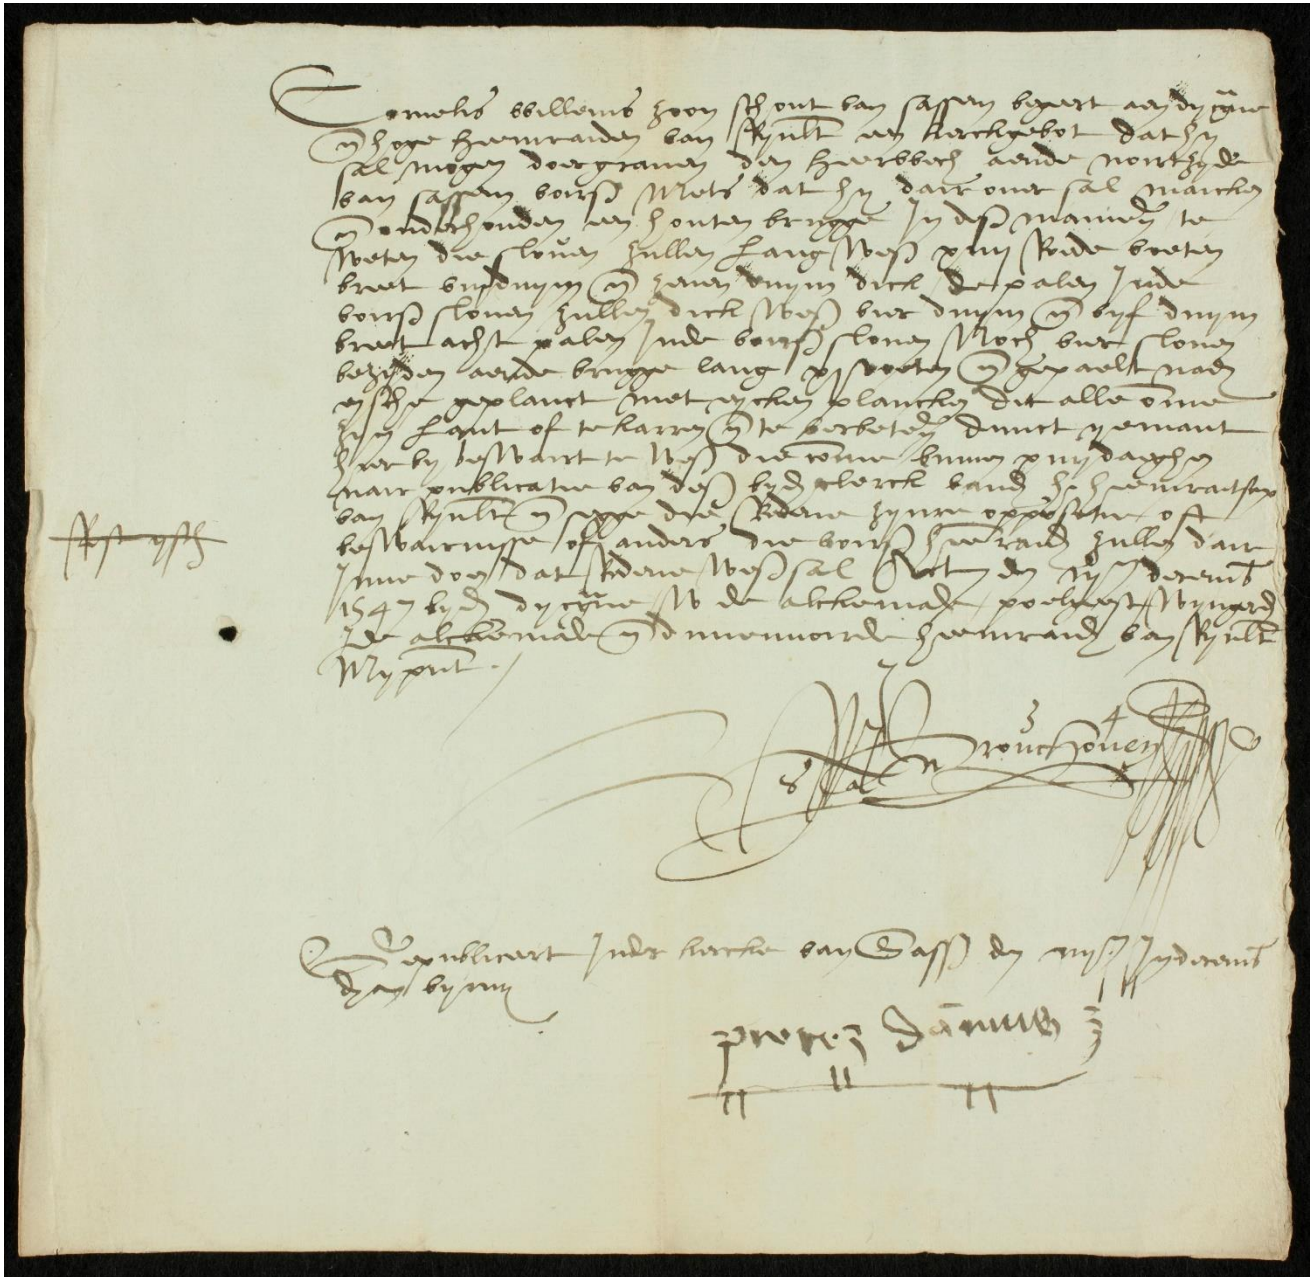 Cornelis Willems zoon schout van sassem begeert aen dycgrave
en hoge heemraiden van Rynlt een kerckgebot dat hy
sal mogen doergraven den heerwech aende nortzyde
van sassem voirss Mets dat hy dair over sal maicken
en onderhouden een houten brugge In deser manieren te
weten die sloven zullen lang wesen xiiij Rode voeten
breet duym en zeven duym dick de palen Inde
voirss sloven zullen dick wesen vier duym en vijf duym
breet acht palen Inde voirss sloven Noch vier sloven
bezyden aende brugge lang xj voeten en gepaelt nade
eysche geplanct met eycken plancken dit alle omme
zyn lant of te karren en te verbeteren dunct yemant
hier by beswairt te wesen die comme binnen xiiij daeghen
nair publicatie van desen byden clerck vanden h. heemraetscap
van Rynlt en segge die Redene zynre oppositie oft
beswairnisse of anders die voirss heemraiden zullen dair
Inne doen dat Redene wesen sal Actum den decembris
1547 byden dycgrave W de alckemade poelgeest Wyngarden
de alckemade en duvenvoirde heemraiden van Rynlt
My present
Brouchoven
Gepubliceert Inder kercke van Sassem den In decembri
by my